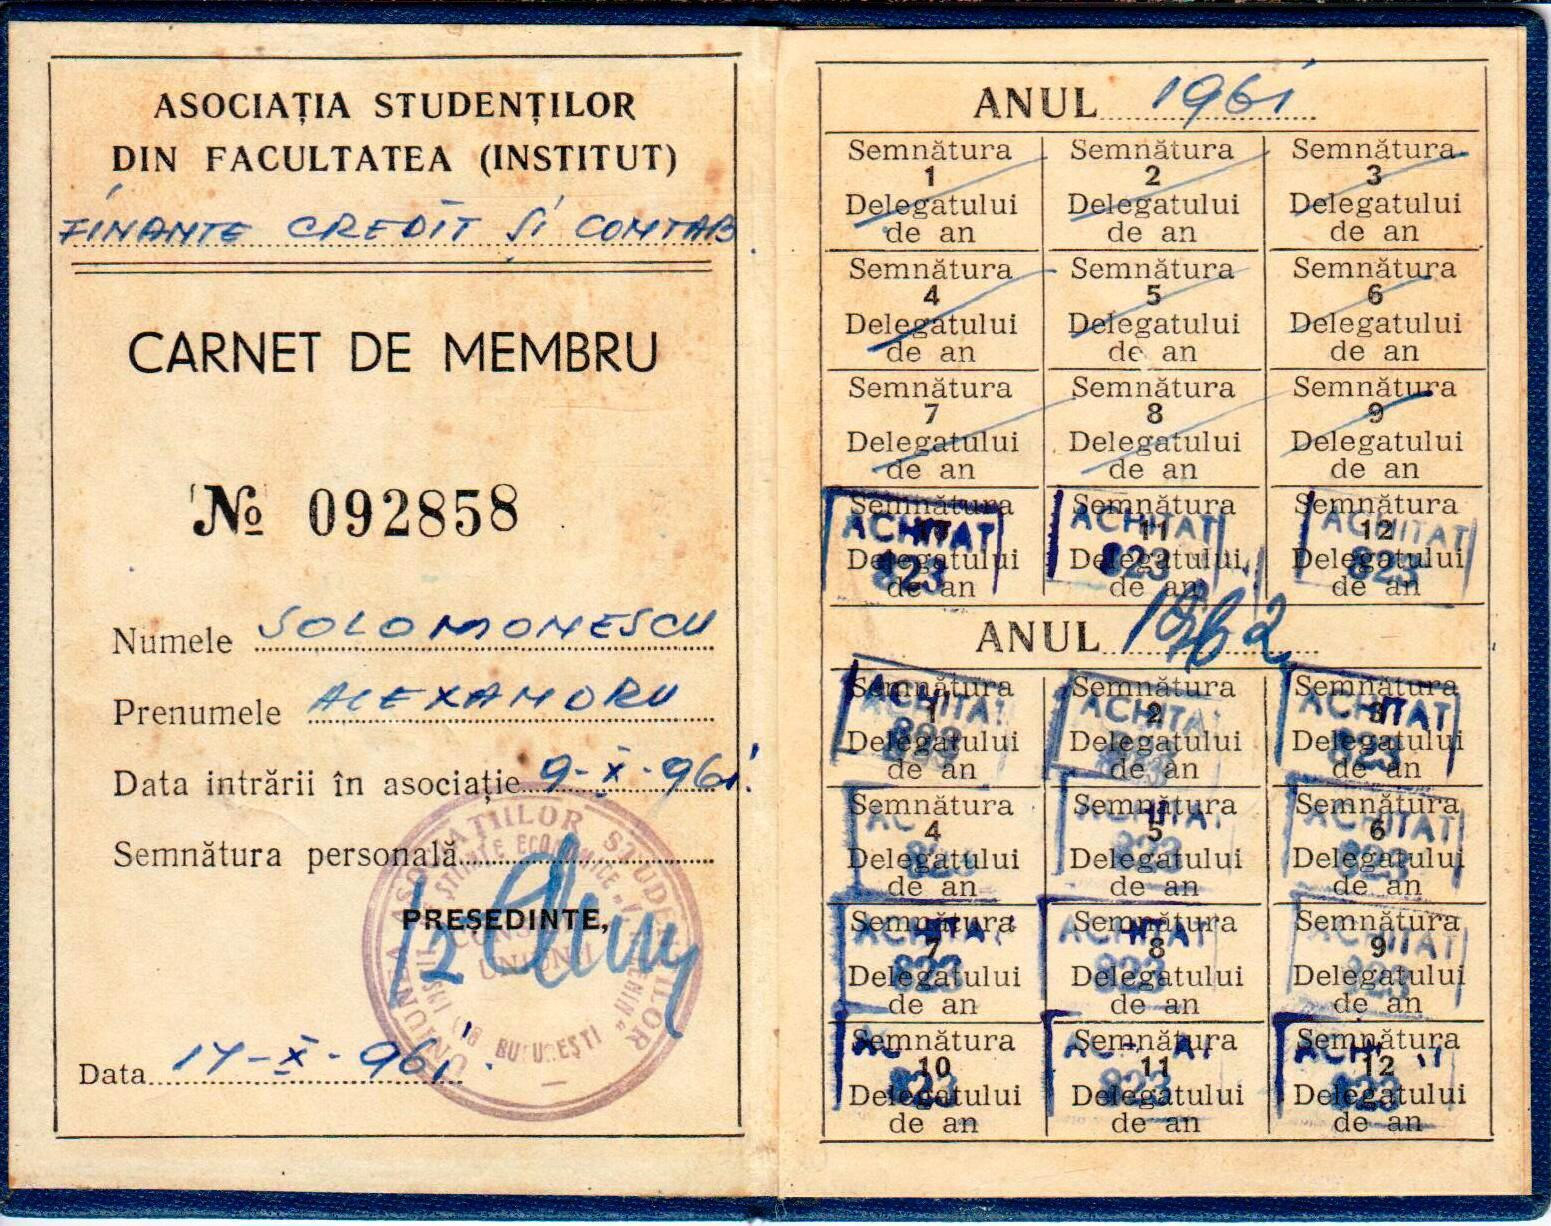 ASOCIAȚIA STUDENȚILOR
DIN FACULTATEA (INSTITUT)
FINANTE CREDIT ȘI CONTAB.
CARNET DE MEMBRU
№ 092858
Numele SOLOMONESCU
Prenumele ALEXANDRU
Data intrării în asociație 9-X-961.
Semnătura personală
PREȘEDINTE,
UNIUNEA ASOCIAȚIILOR STUDENȚILOR
BUCUREȘTI
Data 14-X-961.
ANUL 1961
Semnătura Semnătura Semnătura
1 2 3
Delegatului Delegatului Delegatului
de an de an de an
Semnătura Semnătura Semnătura
4 5 6
Delegatului Delegatului Delegatului
de an de an de an
Semnătura Semnătura Semnătura
7 8 9
Delegatului Delegatului Delegatului
de an de an de an
Semnătura Semnătura Semnătura
ACHITAT ACHITAT ACHITAT
10 11 12
Delegatului Delegatului Delegatului
823 823 823
de an de an de an
ANUL 1962
Semnătura Semnătura Semnătura
ACHITAT ACHITAT ACHITAT
1 2 3
Delegatului Delegatului Delegatului
823 823
de an de an de an
Semnătura Semnătura Semnătura
ACHITAT ACHITAT
4 5 6
Delegatului Delegatului Delegatului
823 823 823
de an de an de an
Semnătura Semnătura Semnătura
ACHITAT ACHITAT ACHITAT
7 8 9
Delegatului Delegatului Delegatului
823 823 823
de an de an de an
Semnătura Semnătura Semnătura
10 11 12
Delegatului Delegatului Delegatului
823 823 823
de an de an de an